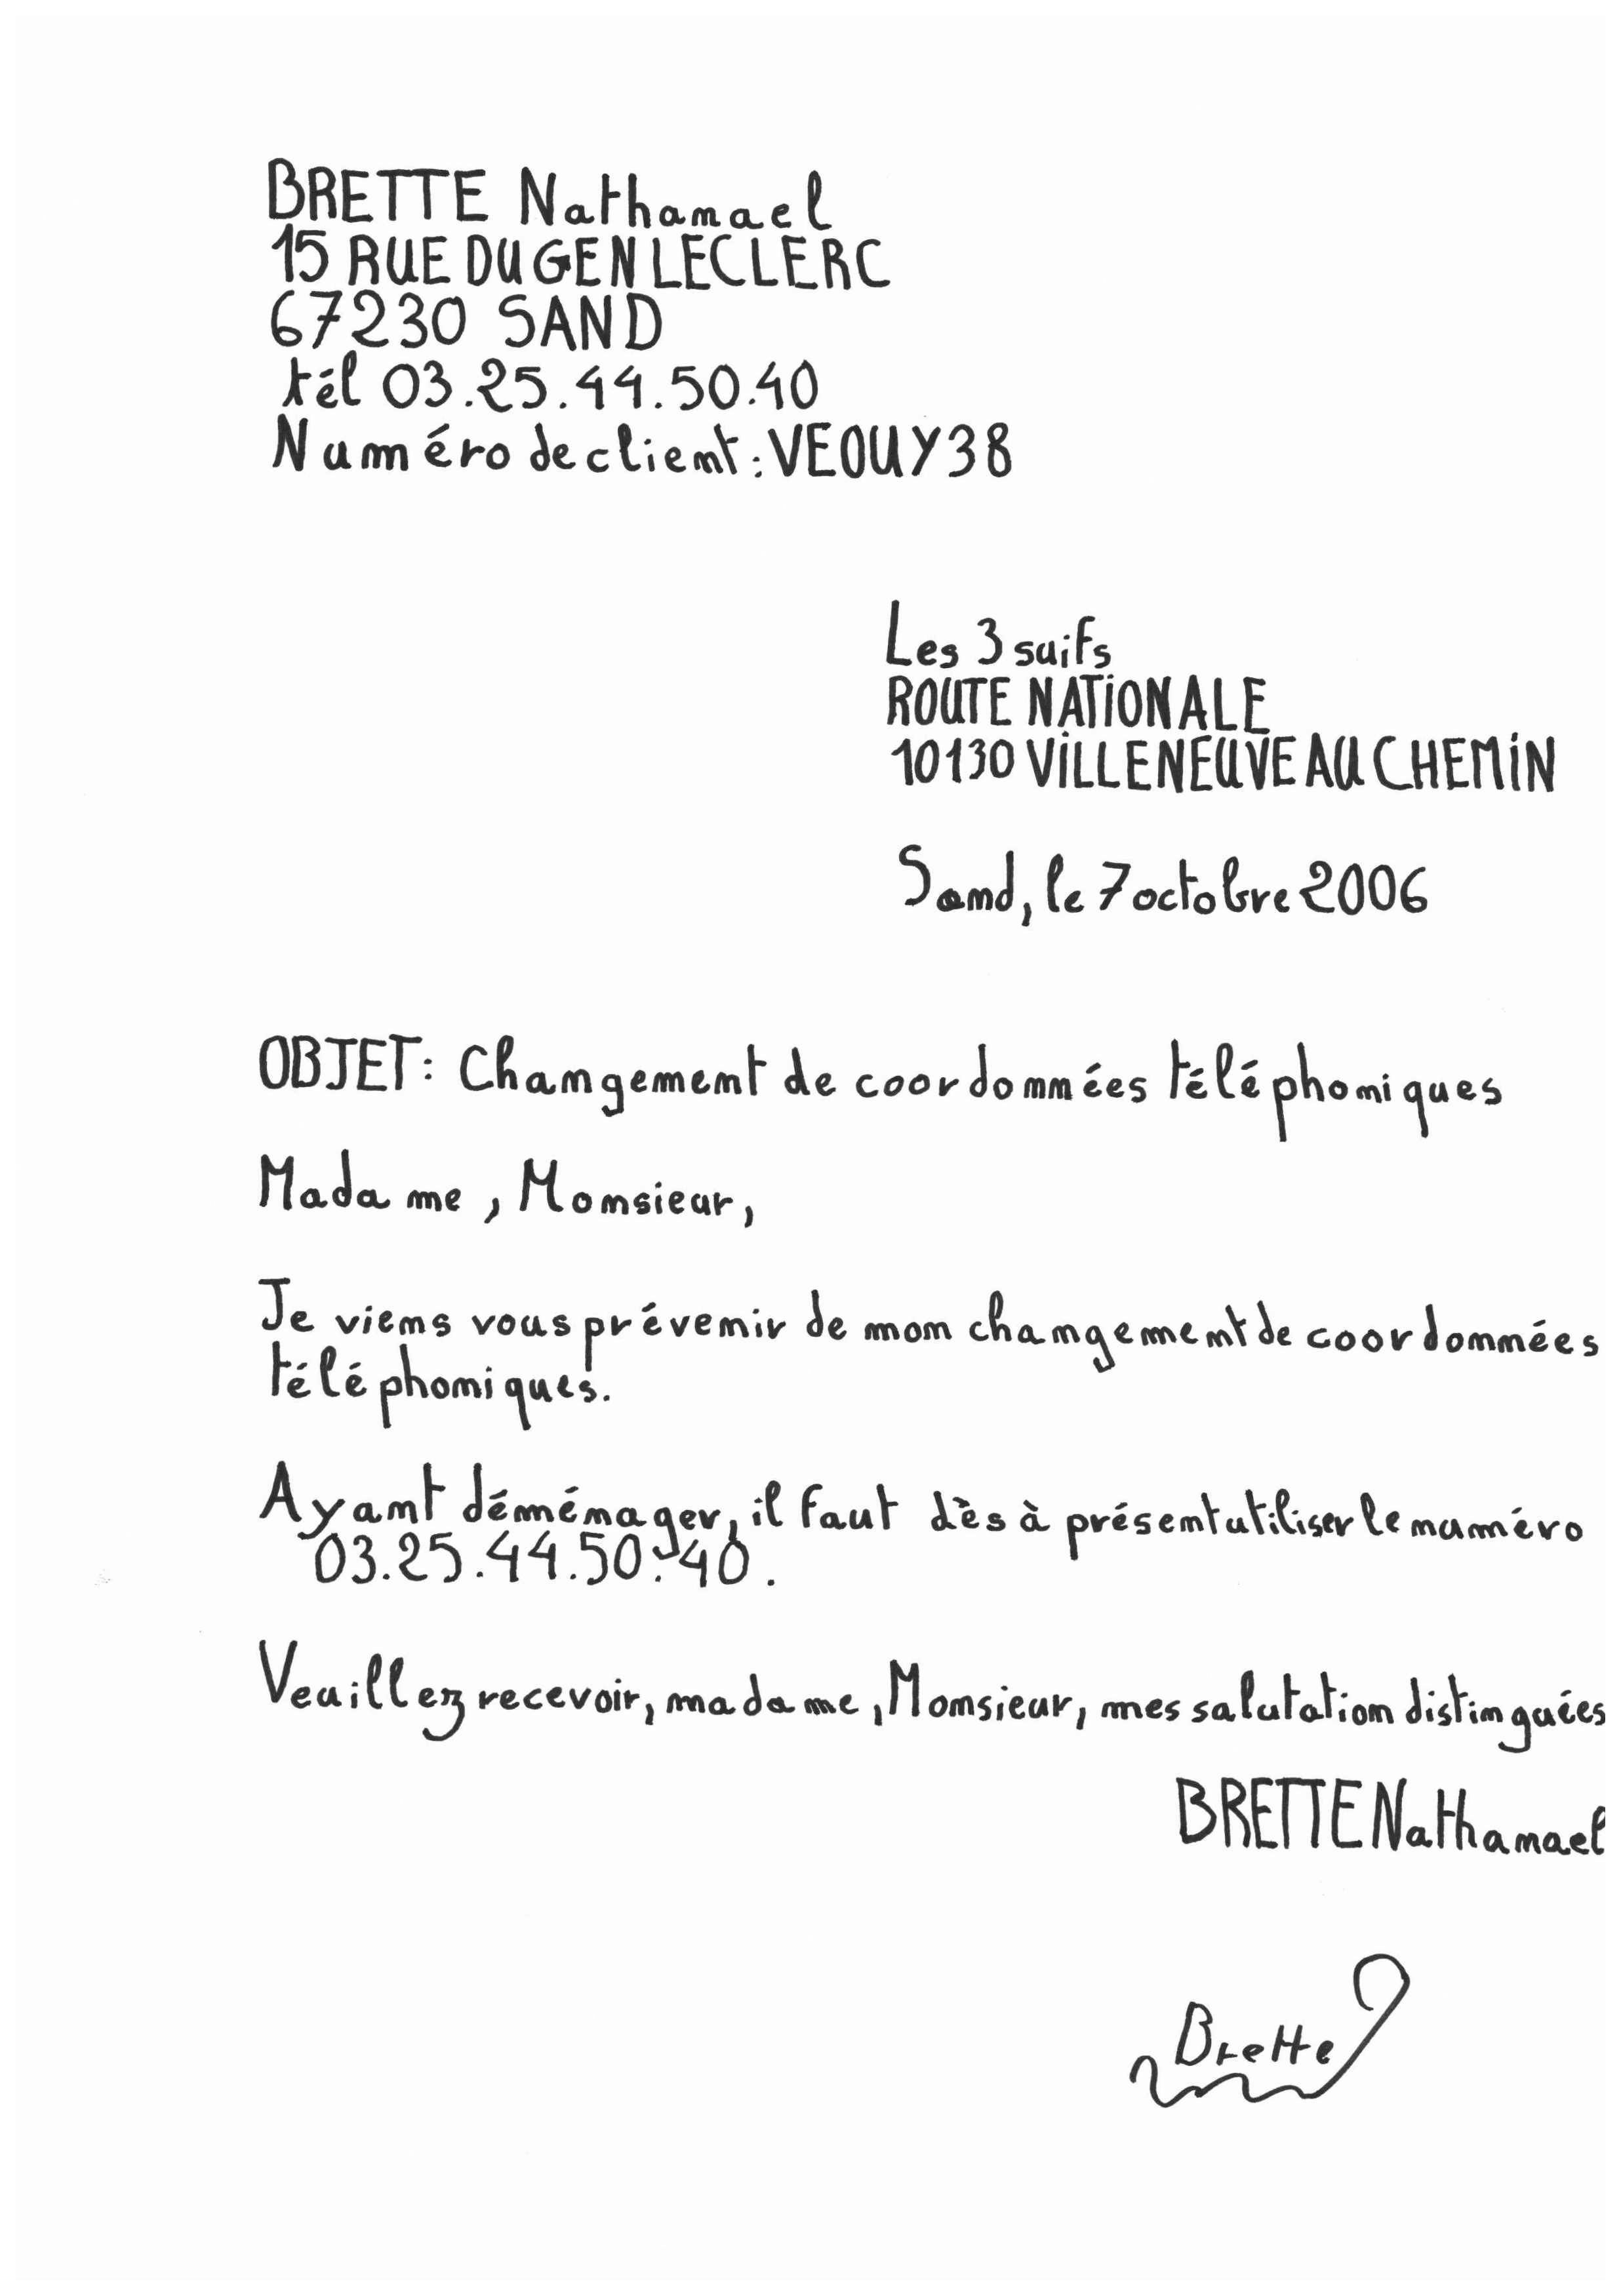 BRETTE Nathanael
15 RUE DU GEN LECLERC
67230 SAND
tél 03.25.44.50.40
Numéro de client : VEOUY38
Les 3 suifs
ROUTE NATIONALE
10130 VILLENEUVE AU CHEMIN
Sand, le 7 octobre 2006
OBJET : Changement de coordonnées téléphoniques
Madame, Monsieur,
Je viens vous prévenir de mon changement de coordonnées
téléphoniques.
Ayant déménager, il faut dès à présent utiliser le numéro
03.25.44.50.40.
Veuillez recevoir, madame, Monsieur, mes salutation distinguées
BRETTE Nathanael
Brette